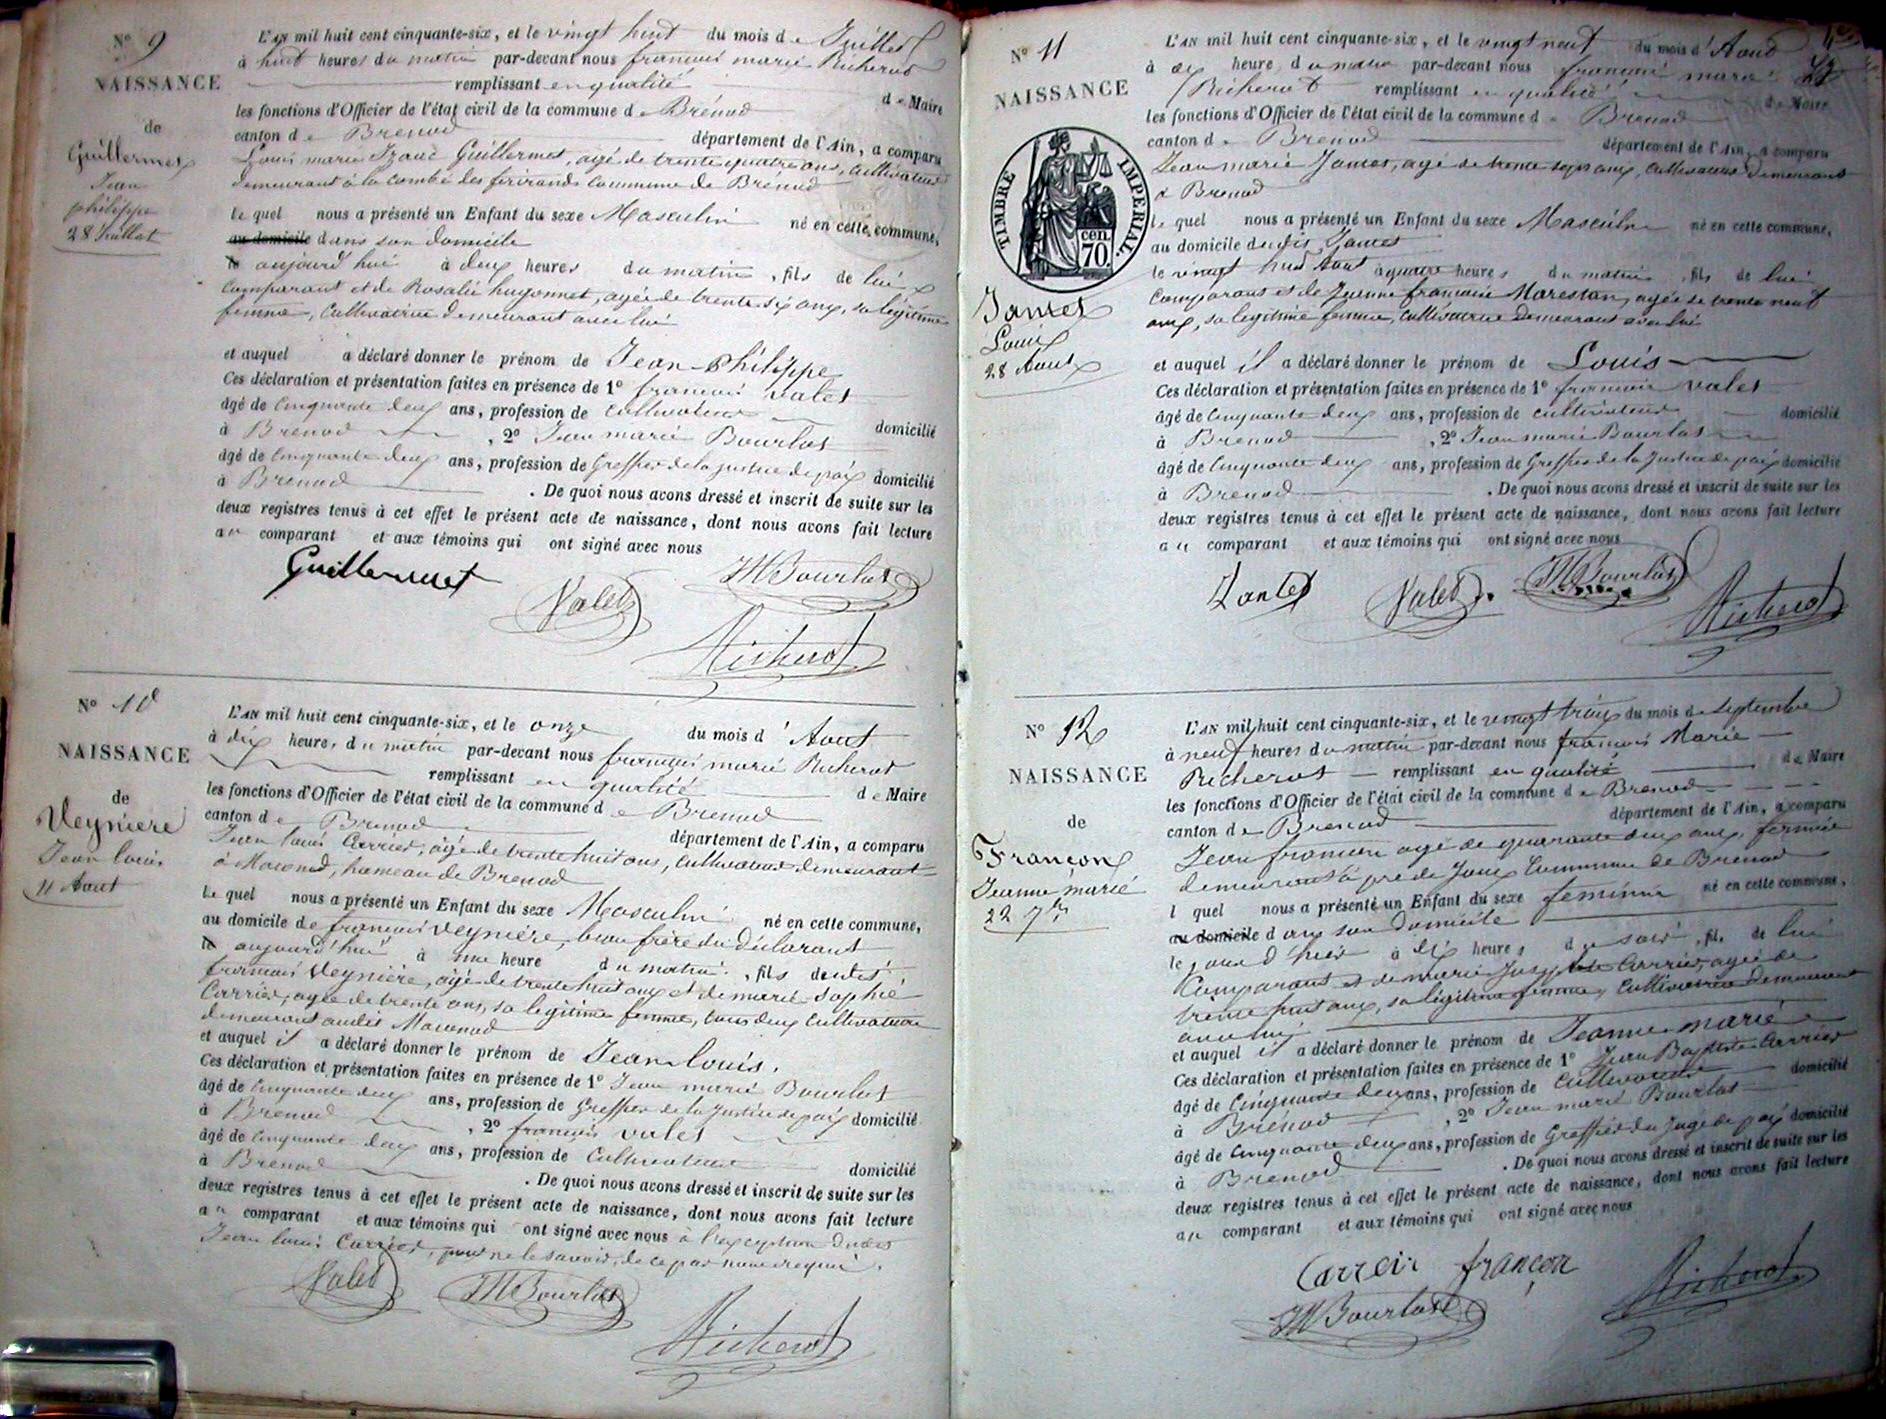 N° 9
NAISSANCE
de
Guillermet
Jean
philippe
28 Juillet
L'AN mil huit cent cinquante-six, et le vingt huit du mois de Juillet
à huit heures du matin par-devant nous françois marie Richerot
remplissant en qualité de Maire
les fonctions d'Officier de l'état civil de la commune de Brénod
canton de Brenod département de l'Ain, a comparu
Louis marie Guillermet, agé de trente quatre ans, cultivateur
demeurant à la combe des ferirands commune de Brénod
le quel nous a présenté un Enfant du sexe Masculin né en cette commune,
au domicile dans son domicile
le aujourd'hui à deux heures du matin, fils de lui
comparant et de Rosalie hugonnet, agée de trente six ans, sa légitime
femme, Cultivatrice demeurant avec lui
et auquel a déclaré donner le prénom de Jean-Philippe
Ces déclaration et présentation faites en présence de 1° francois valet
âgé de cinquante deux ans, profession de cultivateur domicilié
à Brenod, 2° Jean marie Bourlot
âgé de cinquante deux ans, profession de Greffier de la justice de paix domicilié
à Brenod. De quoi nous avons dressé et inscrit de suite sur les
deux registres tenus à cet effet le présent acte de naissance, dont nous avons fait lecture
au comparant et aux témoins qui ont signé avec nous
Guillermet
Valet JMBourlot
Richerot
N° 10
NAISSANCE
de
Veyniere
Jean louis
11 Aout
L'AN mil huit cent cinquante-six, et le onze du mois d'Aout
à dix heures du matin par-devant nous françois marie Richerot
remplissant en qualité de Maire
les fonctions d'Officier de l'état civil de la commune de Brenod
canton de Brenod département de l'Ain, a comparu
Jean louis Carrier, agé de trente huit ans, cultivateur demeurant
à Macconod, hameau de Brenod
le quel nous a présenté un Enfant du sexe Masculin né en cette commune,
au domicile de francois Veynière, beau frère du déclarant
le aujourd'hui à une heure du matin, fils dudit
francois Veynière, agé de trente huit ans et de marie Sophie
Carrier, agée de trente ans, sa légitime femme, tous deux cultivateurs
demeurant audit Macconod
et auquel il a déclaré donner le prénom de Jean louis.
Ces déclaration et présentation faites en présence de 1° Jean marie Bourlot
âgé de cinquante deux ans, profession de Greffier de la Justice de paix domicilié
à Brenod, 2° francois valet
âgé de cinquante deux ans, profession de Cultivateur domicilié
à Brenod. De quoi nous avons dressé et inscrit de suite sur les
deux registres tenus à cet effet le présent acte de naissance, dont nous avons fait lecture
au comparant et aux témoins qui ont signé avec nous à l'exception dudit
Jean louis Carrier, pour ne le savoir, de ce par nous requis.
Valet JMBourlot
Richerot
N° 11
NAISSANCE
TIMBRE IMPERIAL.
cen.
70.
Jantet
Louis
28 Aout
L'AN mil huit cent cinquante-six, et le vingt neuf du mois d'Aout
à dix heure du matin par-devant nous francois marie
Richerot remplissant en qualité de Maire
les fonctions d'Officier de l'état civil de la commune de Brenod
canton de Brenod département de l'Ain, a comparu
Jean marie Jantet, agé de trente sept ans, cultivateur demeurant
à Brenod
le quel nous a présenté un Enfant du sexe Masculin né en cette commune,
au domicile dudit Jantet
le vingt huit Aout à quatre heures du matin, fils de lui
comparant et de Jeanne francoise Marestan, agée de trente neuf
ans, sa légitime femme, cultivatrice demeurant avec lui
et auquel il a déclaré donner le prénom de Louis
Ces déclaration et présentation faites en présence de 1° francois valet
âgé de cinquante deux ans, profession de cultivateur domicilié
à Brenod, 2° Jean marie Bourlot
âgé de cinquante deux ans, profession de Greffier de la Justice de paix domicilié
à Brenod. De quoi nous avons dressé et inscrit de suite sur les
deux registres tenus à cet effet le présent acte de naissance, dont nous avons fait lecture
au comparant et aux témoins qui ont signé avec nous
Jantet Valet JMBourlot
Richerot
N° 12
NAISSANCE
de
Françon
Jeanne marie
22 7bre
L'AN mil huit cent cinquante-six, et le vingt trois du mois de Septembre
à neuf heures du matin par-devant nous francois Marie
Richerot remplissant en qualité de Maire
les fonctions d'Officier de l'état civil de la commune de Brenod
canton de Brenod département de l'Ain, a comparu
Jean francon agé de quarante deux ans, fermier
demeurant à pré de Joux Commune de Brenod
l quel nous a présenté un Enfant du sexe feminin né en cette commune,
au domicile dans son domicile
le jour d'hier à dix heures du soir, fil de lui
Comparant et de marie Carrier, agée de
trente huit ans, sa légitime femme, Cultivatrice demeurant
avec lui
et auquel il a déclaré donner le prénom de Jeanne marie
Ces déclaration et présentation faites en présence de 1° Jean Baptiste Carrier
âgé de Cinquante deux ans, profession de Cultivateur domicilié
à Brénod, 2° Jean marie Bourlot
âgé de Cinquante deux ans, profession de Greffier du Juge de paix domicilié
à Brenod. De quoi nous avons dressé et inscrit de suite sur les
deux registres tenus à cet effet le présent acte de naissance, dont nous avons fait lecture
au comparant et aux témoins qui ont signé avec nous
Carreir françon
JMBourlot Richerot